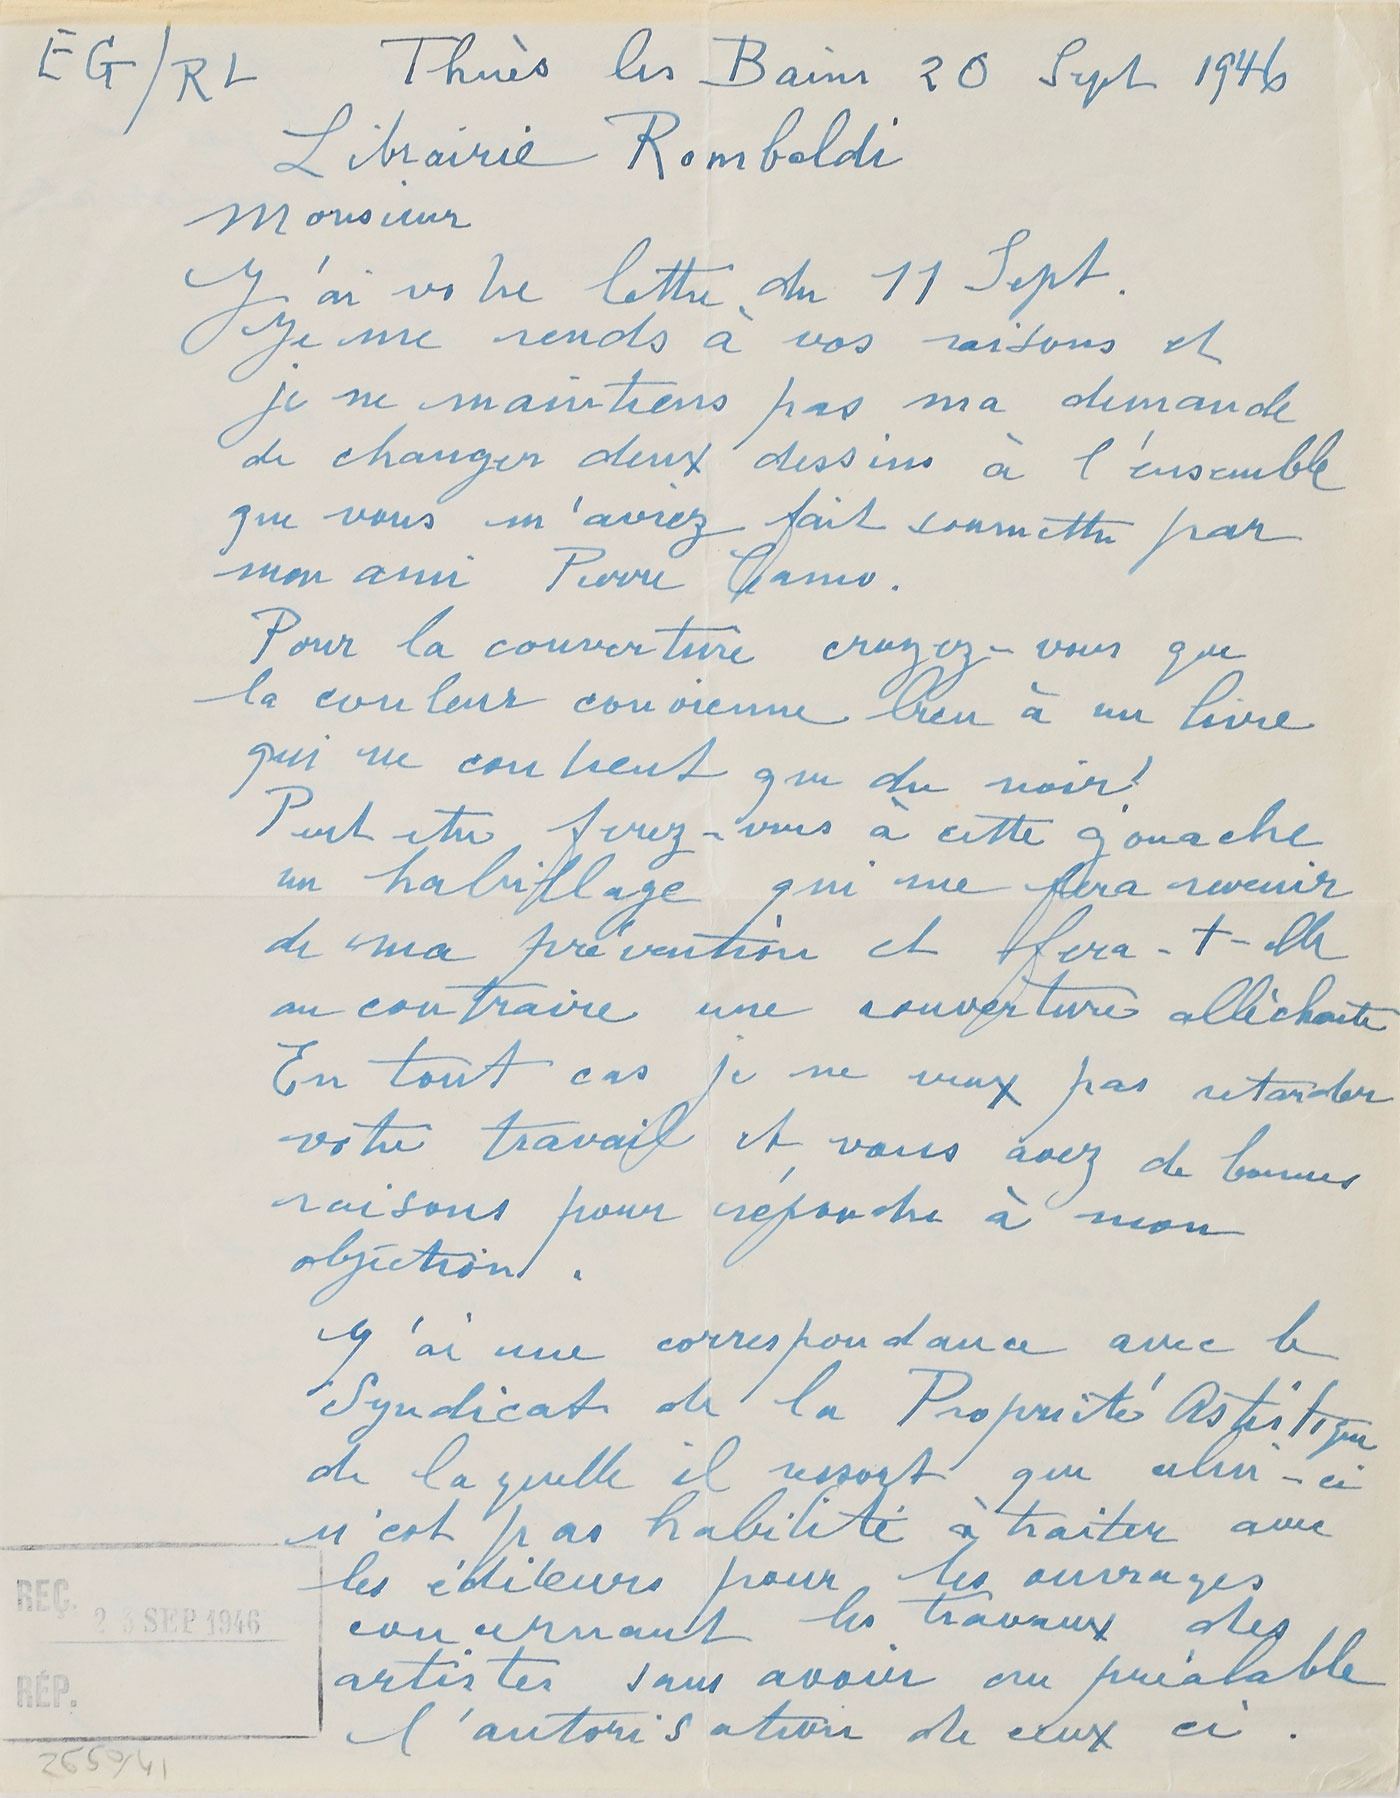 EG/RL Thuès les Bains 20 Sept 1946
Librairie Rombaldi
Monsieur
J'ai votre lettre du 11 Sept.
Je me rends à vos raisons et
je ne maintiens pas ma demande
de changer deux dessins à l'ensemble
que vous m'aviez fait soumettre par
mon ami Pierre Camo.
Pour la couverture croyez-vous que
la couleur convienne bien à un livre
qui ne contient que du noir?
Peut etre ferez-vous à cette gouache
un habillage qui me fera revenir
de ma prévention et fera-t-elle
au contraire une couverture alléchante
En tout cas je ne veux pas retarder
votre travail et vous avez de bonnes
raisons pour répondre à mon
objection.
J'ai une correspondance avec le
Syndicat de la Propriété Artistique
de laquelle il ressort que celui-ci
n'est pas habilité à traiter avec
les éditeurs pour les ouvrages
concernant les travaux des
artistes sans avoir au préalable
l'autorisation de ceux ci.
REÇ. SEP 1946
RÉP.